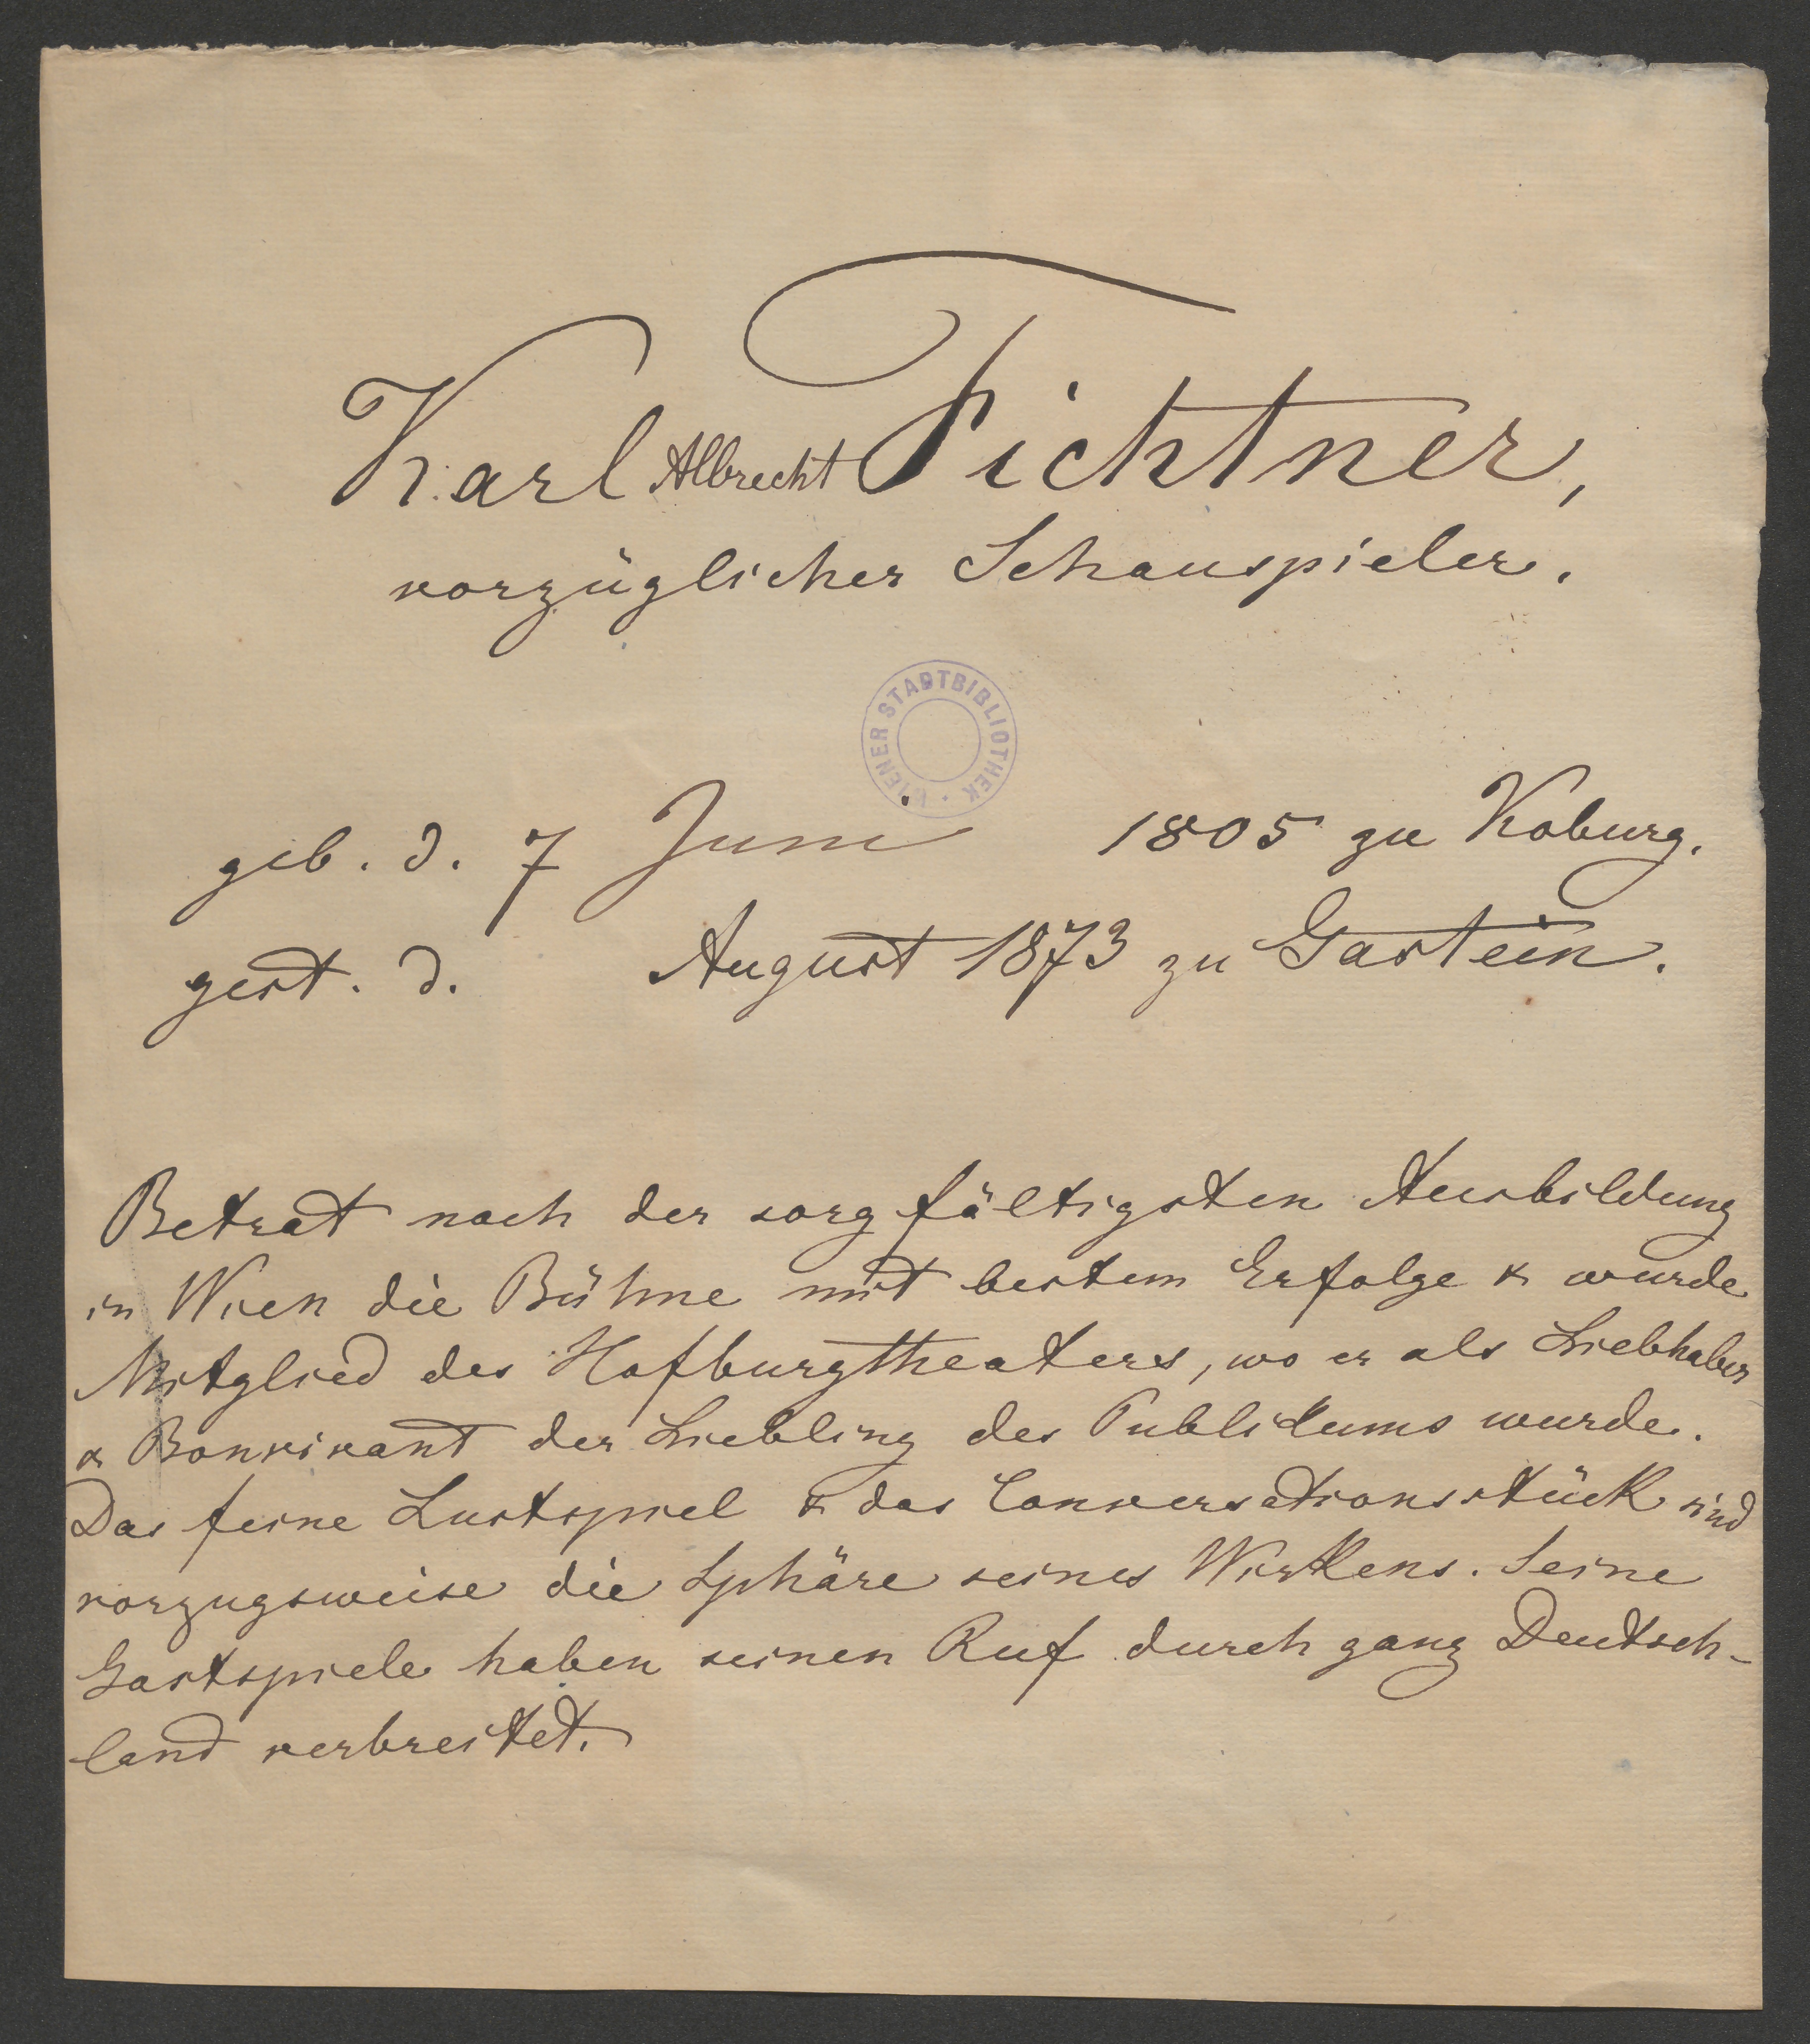 Karl Albrecht Fichtner,
vorzüglicher Schauspieler.
WIENER STADTBIBLIOTHEK
geb. d. 7 Juni 1805 zu Koburg.
gest. d. August 1873 zu Gastein.
Betrat nach der sorgfältigsten Ausbildung
in Wien die Bühne mit bestem Erfolge & wurde
Mitglied des Hofburgtheaters, wo er als Liebhaber
& Bonvivant der Liebling des Publikums wurde.
Das feine Lustspiel & das Conversationsstück sind
vorzugsweise die Sphäre seines Wirkens. Seine
Gastspiele haben seinen Ruf durch ganz Deutsch-
land verbreitet.